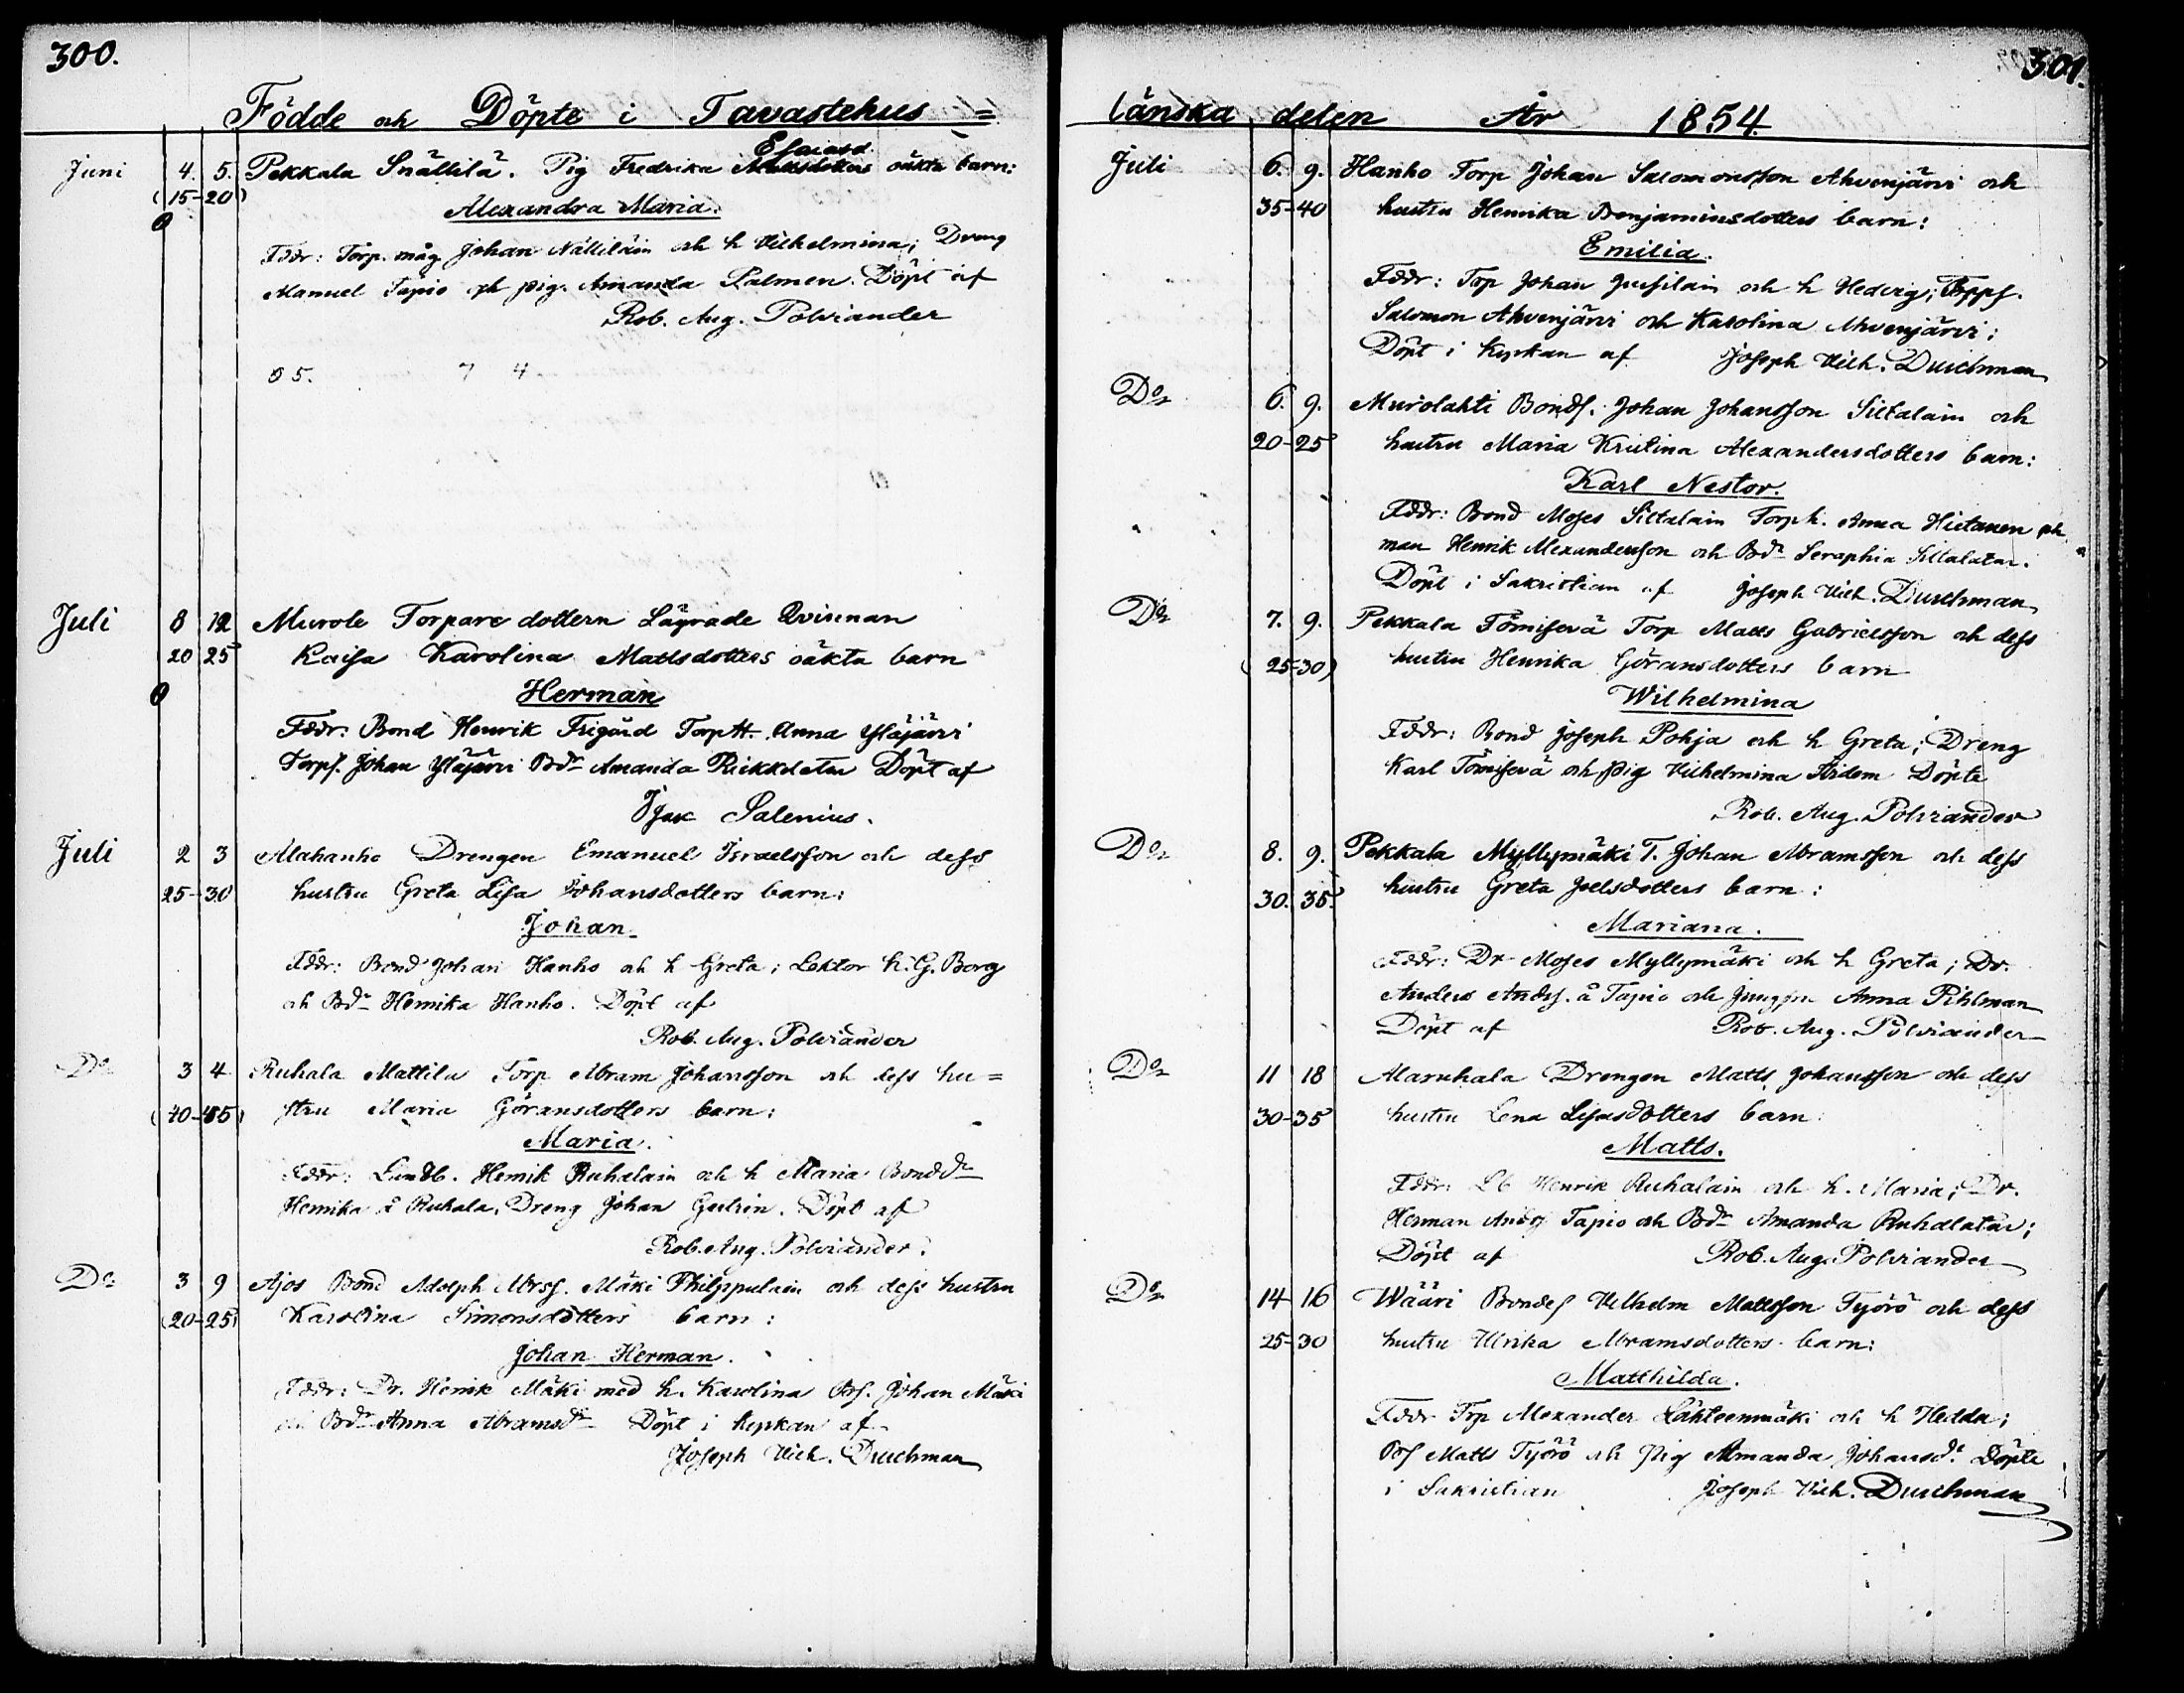 300.
Födde och Döpte i Tavastehus =
Juni 4. 5. Pekkala Snällilä. Pig Fredrika Esaiasd. oäkta barn:
(15-20)
Alexandra Maria.
Fddr: Torp. måg Johan Nälliläin och h Vilhelmina; Dreng
Manuel Tapio och pig. Amanda Palmen. Döpt af
Rob. Aug. Polviander
Juli 8 12 Murole Torpare dottern Lägrade Qvinnan
20 25 Kaisa Karolina Mattsdotters oäkta barn
Herman
Fddr: Bond Henrik Frigård Torp H. Anna Yläjärvi
Torps. Johan Yläjärvi Bdr Amanda Döpt af
Isak Salenius.
Juli 2 3 Alahanho Drengen Emanuel Israelsson och dess
25-30 hustru Greta Lisa Johansdotters barn:
Johan
Fddr: Bond Johan Hanho och h Greta; Lektor h. G. Borg
och Bdr Henrika Hanho. Döpt af
Rob. Aug. Polviander
Do 3 4 Ruhala Mattila Torp Abram Johansson och dess hu=
(40-45) stru Maria Göransdotters barn:
Maria.
Fddr: Lundb. Henrik Ruhalain och h Maria Bonddr
Henrika å Ruhala, Dreng Johan. Döpt af
Rob. Aug. Polviander.
Do 3 9 Ajos Bond Adolph Abrss. Mäki Philippulain och dess hustru
(20-25) Karolina Simonsdotters barn:
Johan Herman.
Fddr: Dr. Henrik Mäki med h. Karolina Bs. Johan Mäki
och Bdr Anna Abramsdr Döpt i kyrkan af
Joseph Vilh. Duchman
301.
länska delen År 1854.
Juli 6. 9. Hanho Torp Johan Salomonsson Ahvenjärvi och
35-40 hustru Henrika Benjaminsdotters barn:
Emilia.
Fddr: Torp Johan Jussilain och h Hedvig; Torps.
Salomon Ahvenjärvi och Karolina Ahvenjärvi;
Döpt i Kyrkan af Joseph Vilh. Duchman
Do 6. 9. Murolahti Bonds. Johan Johansson Siltalain och
20-25 hustru Maria Kristina Alexandersdotters barn:
Karl Nestor.
Fddr: Bond Moses Siltalain Torp h. Anna Hietanen
man Henrik Alexandersson och Bdr Seraphia Siltalatar.
Döpt i Sakristian af Joseph Vilh. Duchman
Do 7. 9. Pekkala Törnisevä Torp Matts Gabrielsson och dess
(25-30) hustru Henrika Göransdotters barn
Wilhelmina
Fddr: Bond Joseph Pohja och h Greta; Dreng
Karl Törnisevä och pig Vilhelmina Döpte
Rob. Aug. Polviander
Do 8. 9. Pekkala Myllymäki T. Johan Abramsson och dess
30. 35. hustru Greta Joelsdotters barn:
Mariana.
Fddr: Dr Moses Myllymäki och h Greta; Dr.
Anders Anderss. å Tapio och Jungfru Anna Pihlman
Döpt af Rob. Aug. Polviander
Do 11 18 Alaruhala Drengen Matts Johansson och dess
30-35 hustru Lena Lisasdotters barn:
Matts.
Fddr: Lb Henrik Ruhalain och h. Maria; Dr.
Herman Anders Tapio och Bdr Amanda Ruhalatar;
Döpt af Rob. Aug. Polviander
Do 14 16 Wääri Bondes Vilhelm Mattsson Työrö och dess
25-30 hustru Ulrika Abramsdotters barn:
Matthilda.
Fddr Trp Alexander Lähteenmäki och h Hedda;
Bs Matts Työrö och pig Amanda Johansdr Döpte
i Sakristian Joseph Vilh. Duchman